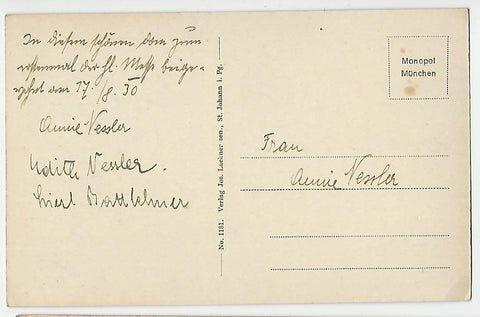 In diesem schönen dom zum
erstenmal der hl. Messe beige-
wohnt am 17./8. 30
Annie Vessler
Udith Vessler.
Liesl
No. 1181. Verlag Jos. Lackner sen., St. Johann i. Pg.
Monopol
München
Frau
Annie Vessler